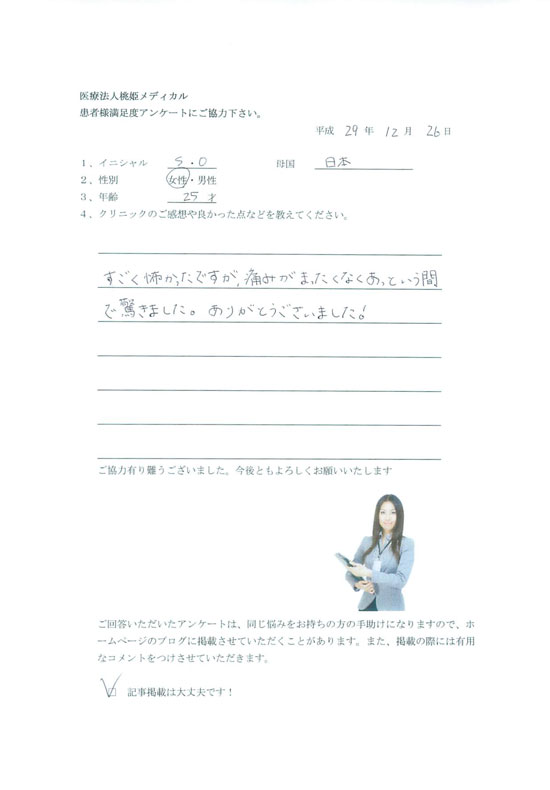 医療法人桃姫メディカル
患者様満足度アンケートにご協力下さい。
平成 29 年 12 月 26 日
1、イニシャル S・O 母国 日本
2、性別 女性・男性
3、年齢 25 才
4、クリニックのご感想や良かった点などを教えてください。
すごく怖かったですが、痛みがまったくなくあっという間
で驚きました。ありがとうございました!
ご協力有り難うございました。今後ともよろしくお願いいたします
ご回答いただいたアンケートは、同じ悩みをお持ちの方の手助けになりますので、ホ
ームページのブログに掲載させていただくことがあります。また、掲載の際には有用
なコメントをつけさせていただきます。
記事掲載は大丈夫です！